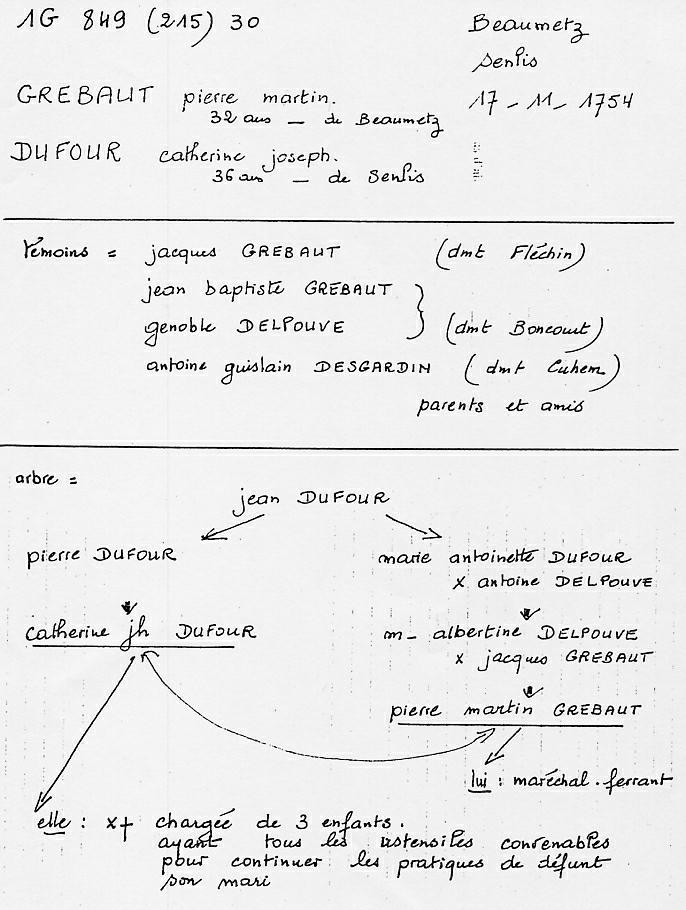 1G 849 (215) 30
Beaumetz
Senlis
GREBAUT pierre martin.
32 ans _ de Beaumetz
17 - 11 - 1754
DUFOUR catherine joseph.
36 ans _ de Senlis
Témoins = jacques GREBAUT (dmt Fléchin)
jean baptiste GREBAUT
genoble DELPOUVE } (dmt Boncourt)
antoine guislain DESGARDIN (dmt Cuhem)
parents et amis
arbre =
jean DUFOUR
pierre DUFOUR
marie antoinette DUFOUR
x antoine DELPOUVE
catherine jh DUFOUR
m_ albertine DELPOUVE
x jacques GREBAUT
pierre martin GREBAUT
lui : maréchal-ferrant
elle : x+ chargée de 3 enfants.
ayant tous les ustensiles convenables
pour continuer les pratiques de défunt
son mari